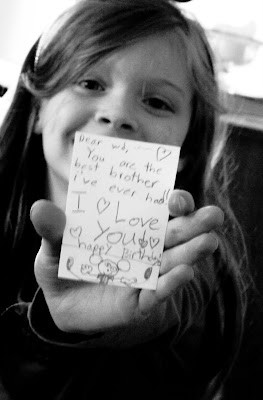 Dear wd,
You are the
best brother
i've ever had!!
I Love
You
happy Birthday